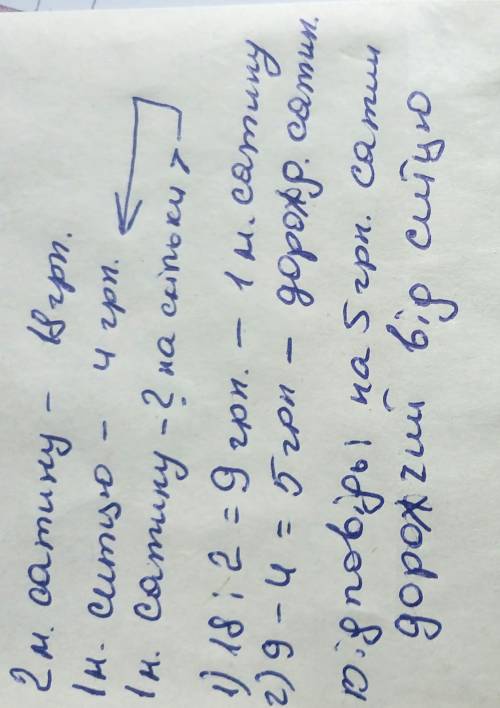 2 м. сатину - 18 грн.
1 м. ситцю - 4 грн.
1 м. сатину - ? на скільки >
1) 18 : 2 = 9 грн. - 1 м. сатину
2) 9 - 4 = 5 грн - дорожр. сатин.
відповідь на 5 грн. сатин
дорожчий від ситцю